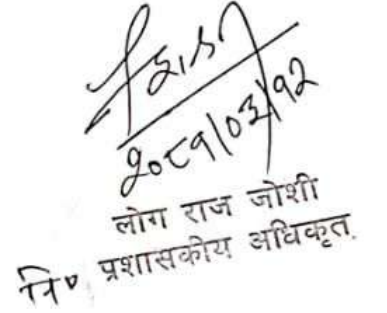 २०८१/०३/१२
लोग राज जोशी
नि॰ प्रशासकीय अधिकृत